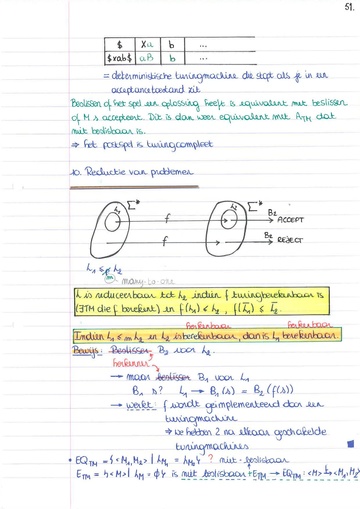 51.
$ | X u | b | ...
$xab$ | aB | b | ...
= deterministische turingmachine die stopt als je in een
acceptancetoestand zit
Beslissen of het spel een oplossing heeft is equivalent met beslissen
of M s accepteert. Dit is dan weer equivalent met A_TM dat
niet beslisbaar is.
⇒ het postspel is turingcompleet
10. Reductie van problemen
L₁ Σ* f L₂ Σ* B₂ → ACCEPT
f B₂ → REJECT
L₁ ≤m L₂
many-to-one
L₁ is reduceerbaar tot L₂ indien f turingberekenbaar is
(∃TM die f berekent) en f(L₁) ⊆ L₂, f(L̄₁) ⊆ L̄₂
herkenbaar herkenbaar
Indien L₁ ≤m L₂ en L₂ is berekenbaar, dan is L₁ berekenbaar.
Bewijs: Beslisser B₂ voor L₂.
herkenner
→ maak beslisser B₁ voor L₁
B₁ s? L₁ → B₁(s) = B₂(f(s))
→ werkt: f wordt geïmplementeerd door een
turingmachine
⇒ we hebben 2 na elkaar geschakelde
turingmachines
• EQ_TM = {<M₁, M₂> | L_M₁ = L_M₂} ? niet-beslisbaar
E_TM = {<M> | L_M = ∅} is niet beslisbaar → E_TM → EQ_TM: <M> ↦ <M₁, M₂>